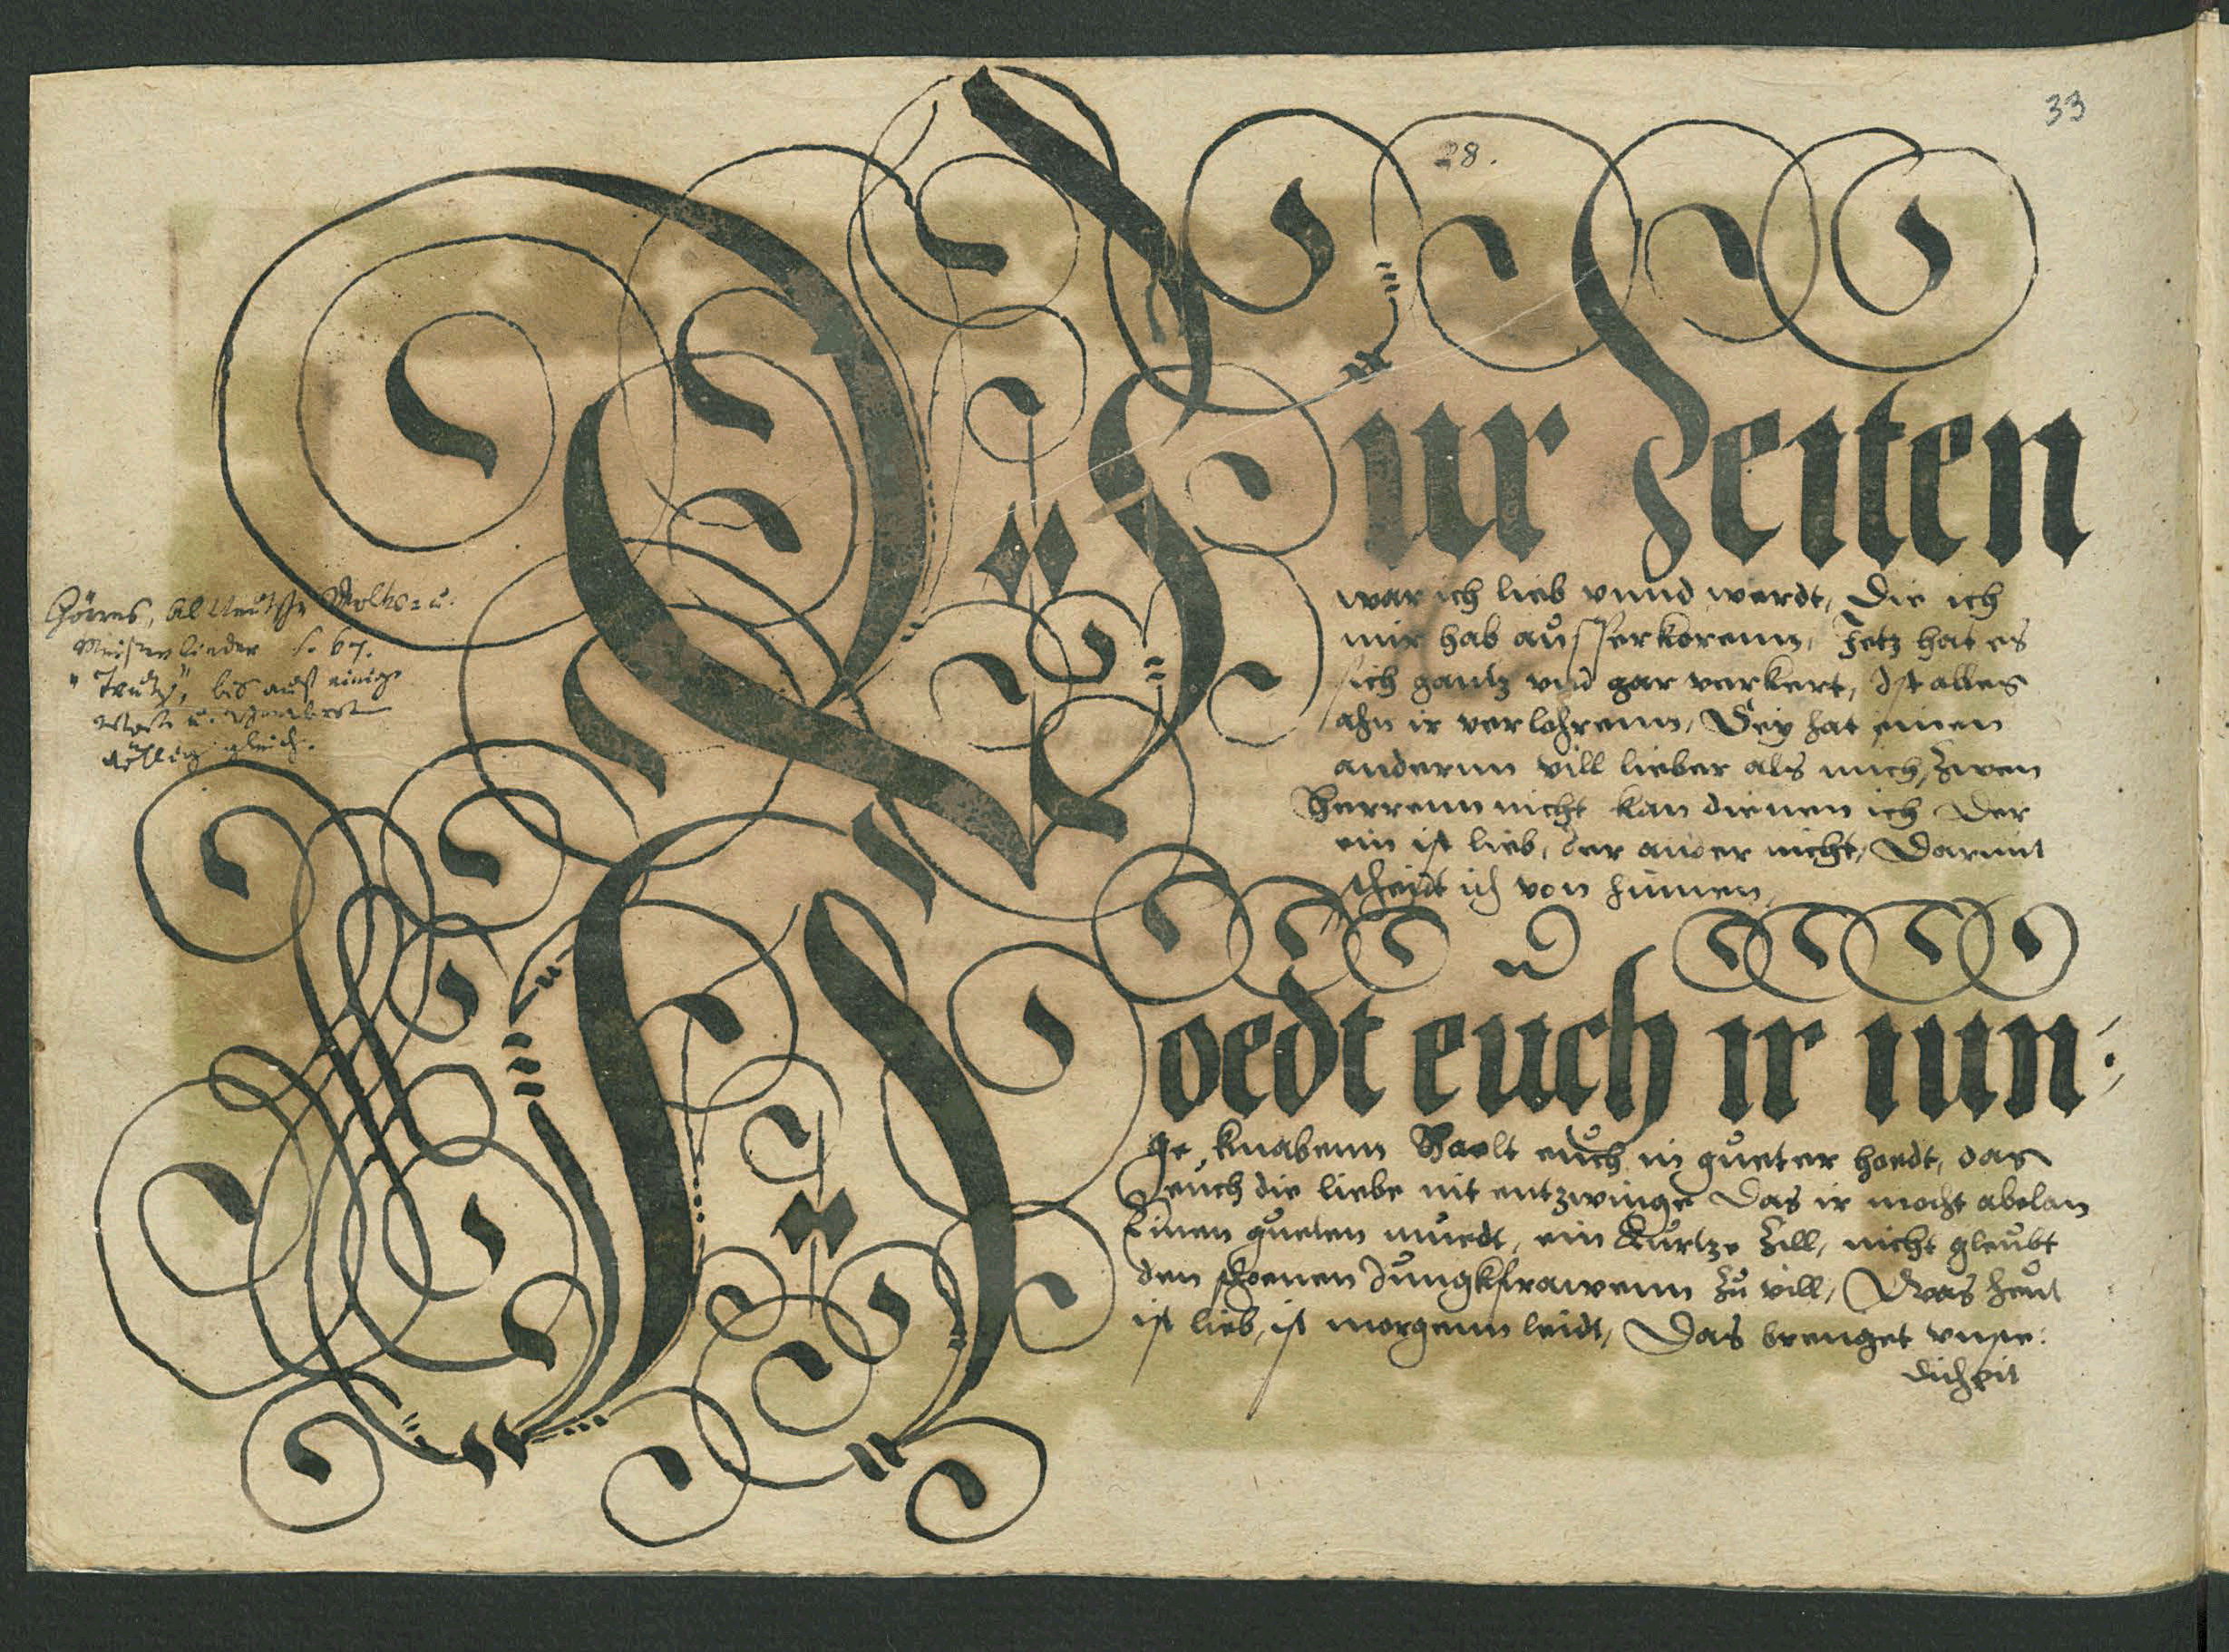 33
28.
Vur Zeiten
war ich lieb vnnd werdt, Die ich
mir hab ausserkorenn, Jetz hat es
sich gantz vnd gar verkert, Ist alles
ahn ir verlohrenn, Sey hat einen
andernn vill lieber als mich, Zwen
Herrenn nicht kan dienen ich Der
ein ist lieb, der ander nicht, Darumb
scheidt ich von hinnen,
Hoedt euch ir iun:
ge knabenn Haelt euch in gueter hoedt, das
euch die liebe nit entzwinge Das ir mocht abelan
Einen gueten muedt, ein Kurtze Zill, nicht gleubt
den schoenen Jungkfrawenn zu vill, Was heut
ist lieb, ist morgenn leidt, Das brenget
dicheit
Görres, Altteutsche Volks- u.
Meisterlieder S. 67.
"Trutz", bis auf einige
gleich.